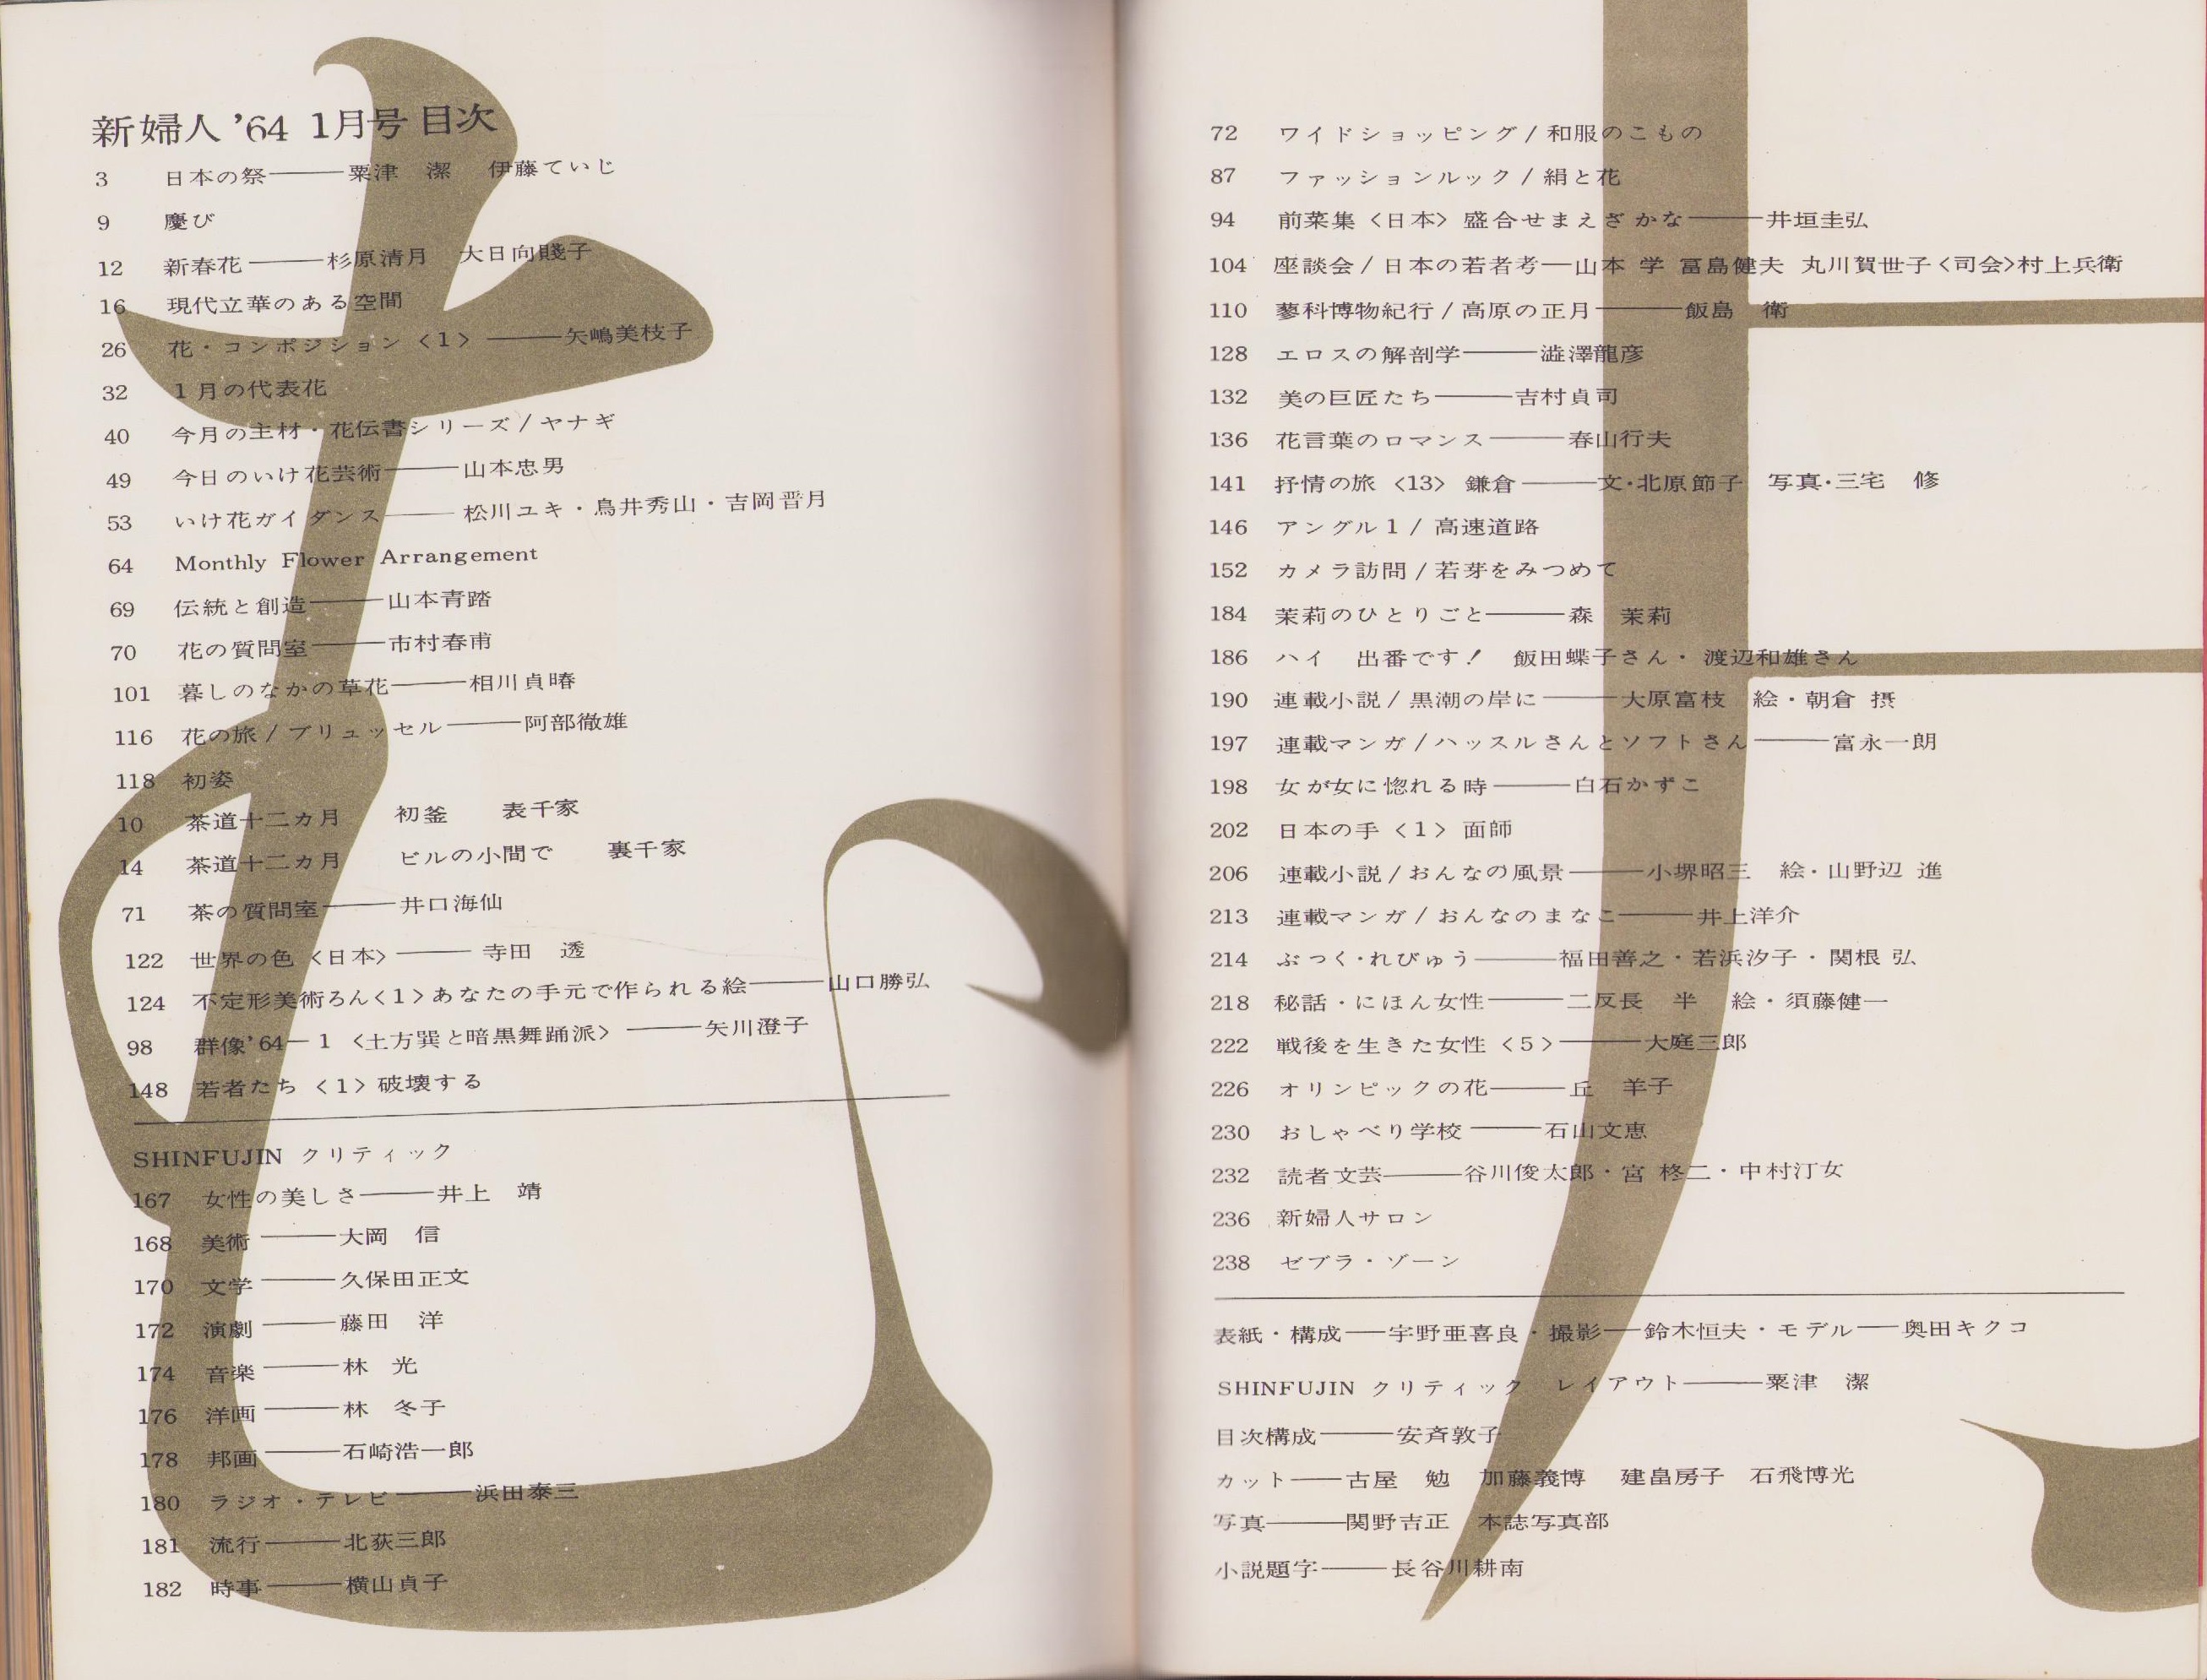 新婦人 ’64 1月号 目次
3 日本の祭───粟津 潔 伊藤ていじ
9 慶び
12 新春花───杉原清月 大日向賤子
16 現代立華のある空間
26 花・コンポジション〈1〉───矢嶋美枝子
32 1月の代表花
40 今月の主材・花伝書シリーズ/ヤナギ
49 今日のいけ花芸術───山本忠男
53 いけ花ガイダンス───松川ユキ・鳥井秀山・吉岡晋月
64 Monthly Flower Arrangement
69 伝統と創造───山本青踏
70 花の質問室───市村春甫
101 暮しのなかの草花───相川貞暿
116 花の旅/ブリュッセル───阿部徹雄
118 初姿
10 茶道十二カ月 初釜 表千家
14 茶道十二カ月 ビルの小間で 裏千家
71 茶の質問室───井口海仙
122 世界の色〈日本〉───寺田 透
124 不定形美術ろん〈1〉あなたの手元で作られる絵───山口勝弘
98 群像’64─1〈土方巽と暗黒舞踊派〉───矢川澄子
148 若者たち〈1〉破壊する
SHINFUJIN クリティック
167 女性の美しさ───井上 靖
168 美術───大岡 信
170 文学───久保田正文
172 演劇───藤田 洋
174 音楽───林 光
176 洋画───林 冬子
178 邦画───石崎浩一郎
180 ラジオ・テレビ───浜田泰三
181 流行───北荻三郎
182 時事───横山貞子
72 ワイドショッピング/和服のこもの
87 ファッションルック/絹と花
94 前菜集〈日本〉盛合せまえざかな───井垣圭弘
104 座談会/日本の若者考─山本 学 冨島健夫 丸川賀世子〈司会〉村上兵衛
110 蓼科博物紀行/高原の正月───飯島 衛
128 エロスの解剖学───澁澤龍彦
132 美の巨匠たち───吉村貞司
136 花言葉のロマンス───春山行夫
141 抒情の旅〈13〉鎌倉───文・北原節子 写真・三宅 修
146 アングル1/高速道路
152 カメラ訪問/若芽をみつめて
184 茉莉のひとりごと───森 茉莉
186 ハイ 出番です! 飯田蝶子さん・渡辺和雄さん
190 連載小説/黒潮の岸に───大原富枝 絵・朝倉 摂
197 連載マンガ/ハッスルさんとソフトさん───富永一朗
198 女が女に惚れる時───白石かずこ
202 日本の手〈1〉面師
206 連載小説/おんなの風景───小堺昭三 絵・山野辺 進
213 連載マンガ/おんなのまなこ───井上洋介
214 ぶっく・れびゅう───福田善之・若浜汐子・関根 弘
218 秘話・にほん女性───二反長 半 絵・須藤健一
222 戦後を生きた女性〈5〉───大庭三郎
226 オリンピックの花───丘 羊子
230 おしゃべり学校───石山文恵
232 読者文芸───谷川俊太郎・宮 柊二・中村汀女
236 新婦人サロン
238 ゼブラ・ゾーン
表紙・構成──宇野亜喜良・撮影──鈴木恒夫・モデル──奥田キクコ
SHINFUJIN クリティック レイアウト───粟津 潔
目次構成───安斉敦子
カット──古屋 勉 加藤義博 建畠房子 石飛博光
写真───関野吉正 本誌写真部
小説題字───長谷川耕南